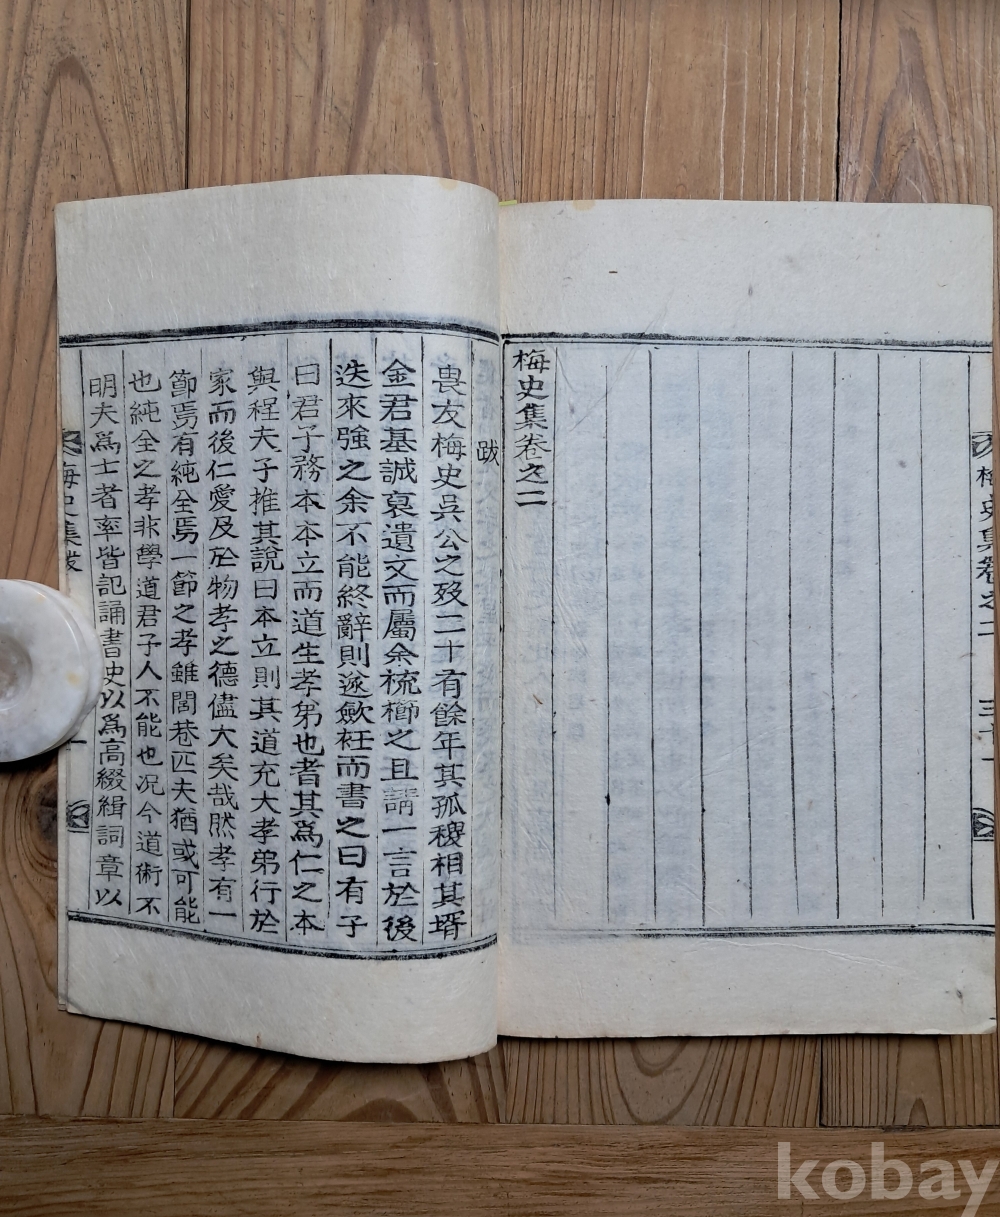 梅史集卷之二
梅史集卷之二
跋
畏友梅史吳公之歿二十有餘年其孤稷相其壻
金君基誠裒遺文而屬余梳櫛之且請一言於後
迭來強之余不能終辭則遂歛衽而書之曰有子
曰君子務本本立而道生孝弟也者其爲仁之本
與程夫子推其說曰本立則其道充大孝弟行於
家而後仁愛及於物孝之德儘大矣哉然孝有一
節焉有純全焉一節之孝雖閭巷匹夫猶或可能
也純全之孝非學道君子人不能也况今道術不
明夫爲士者率皆記誦書史以爲高綴緝詞章以
梅史集跋
kobay